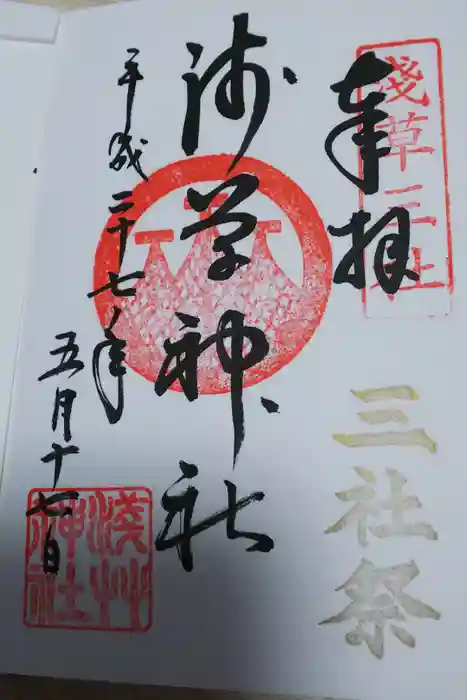 奉拝
淺草三社
三社祭
浅草神社
平成二十七年
五月十七日
淺草神社